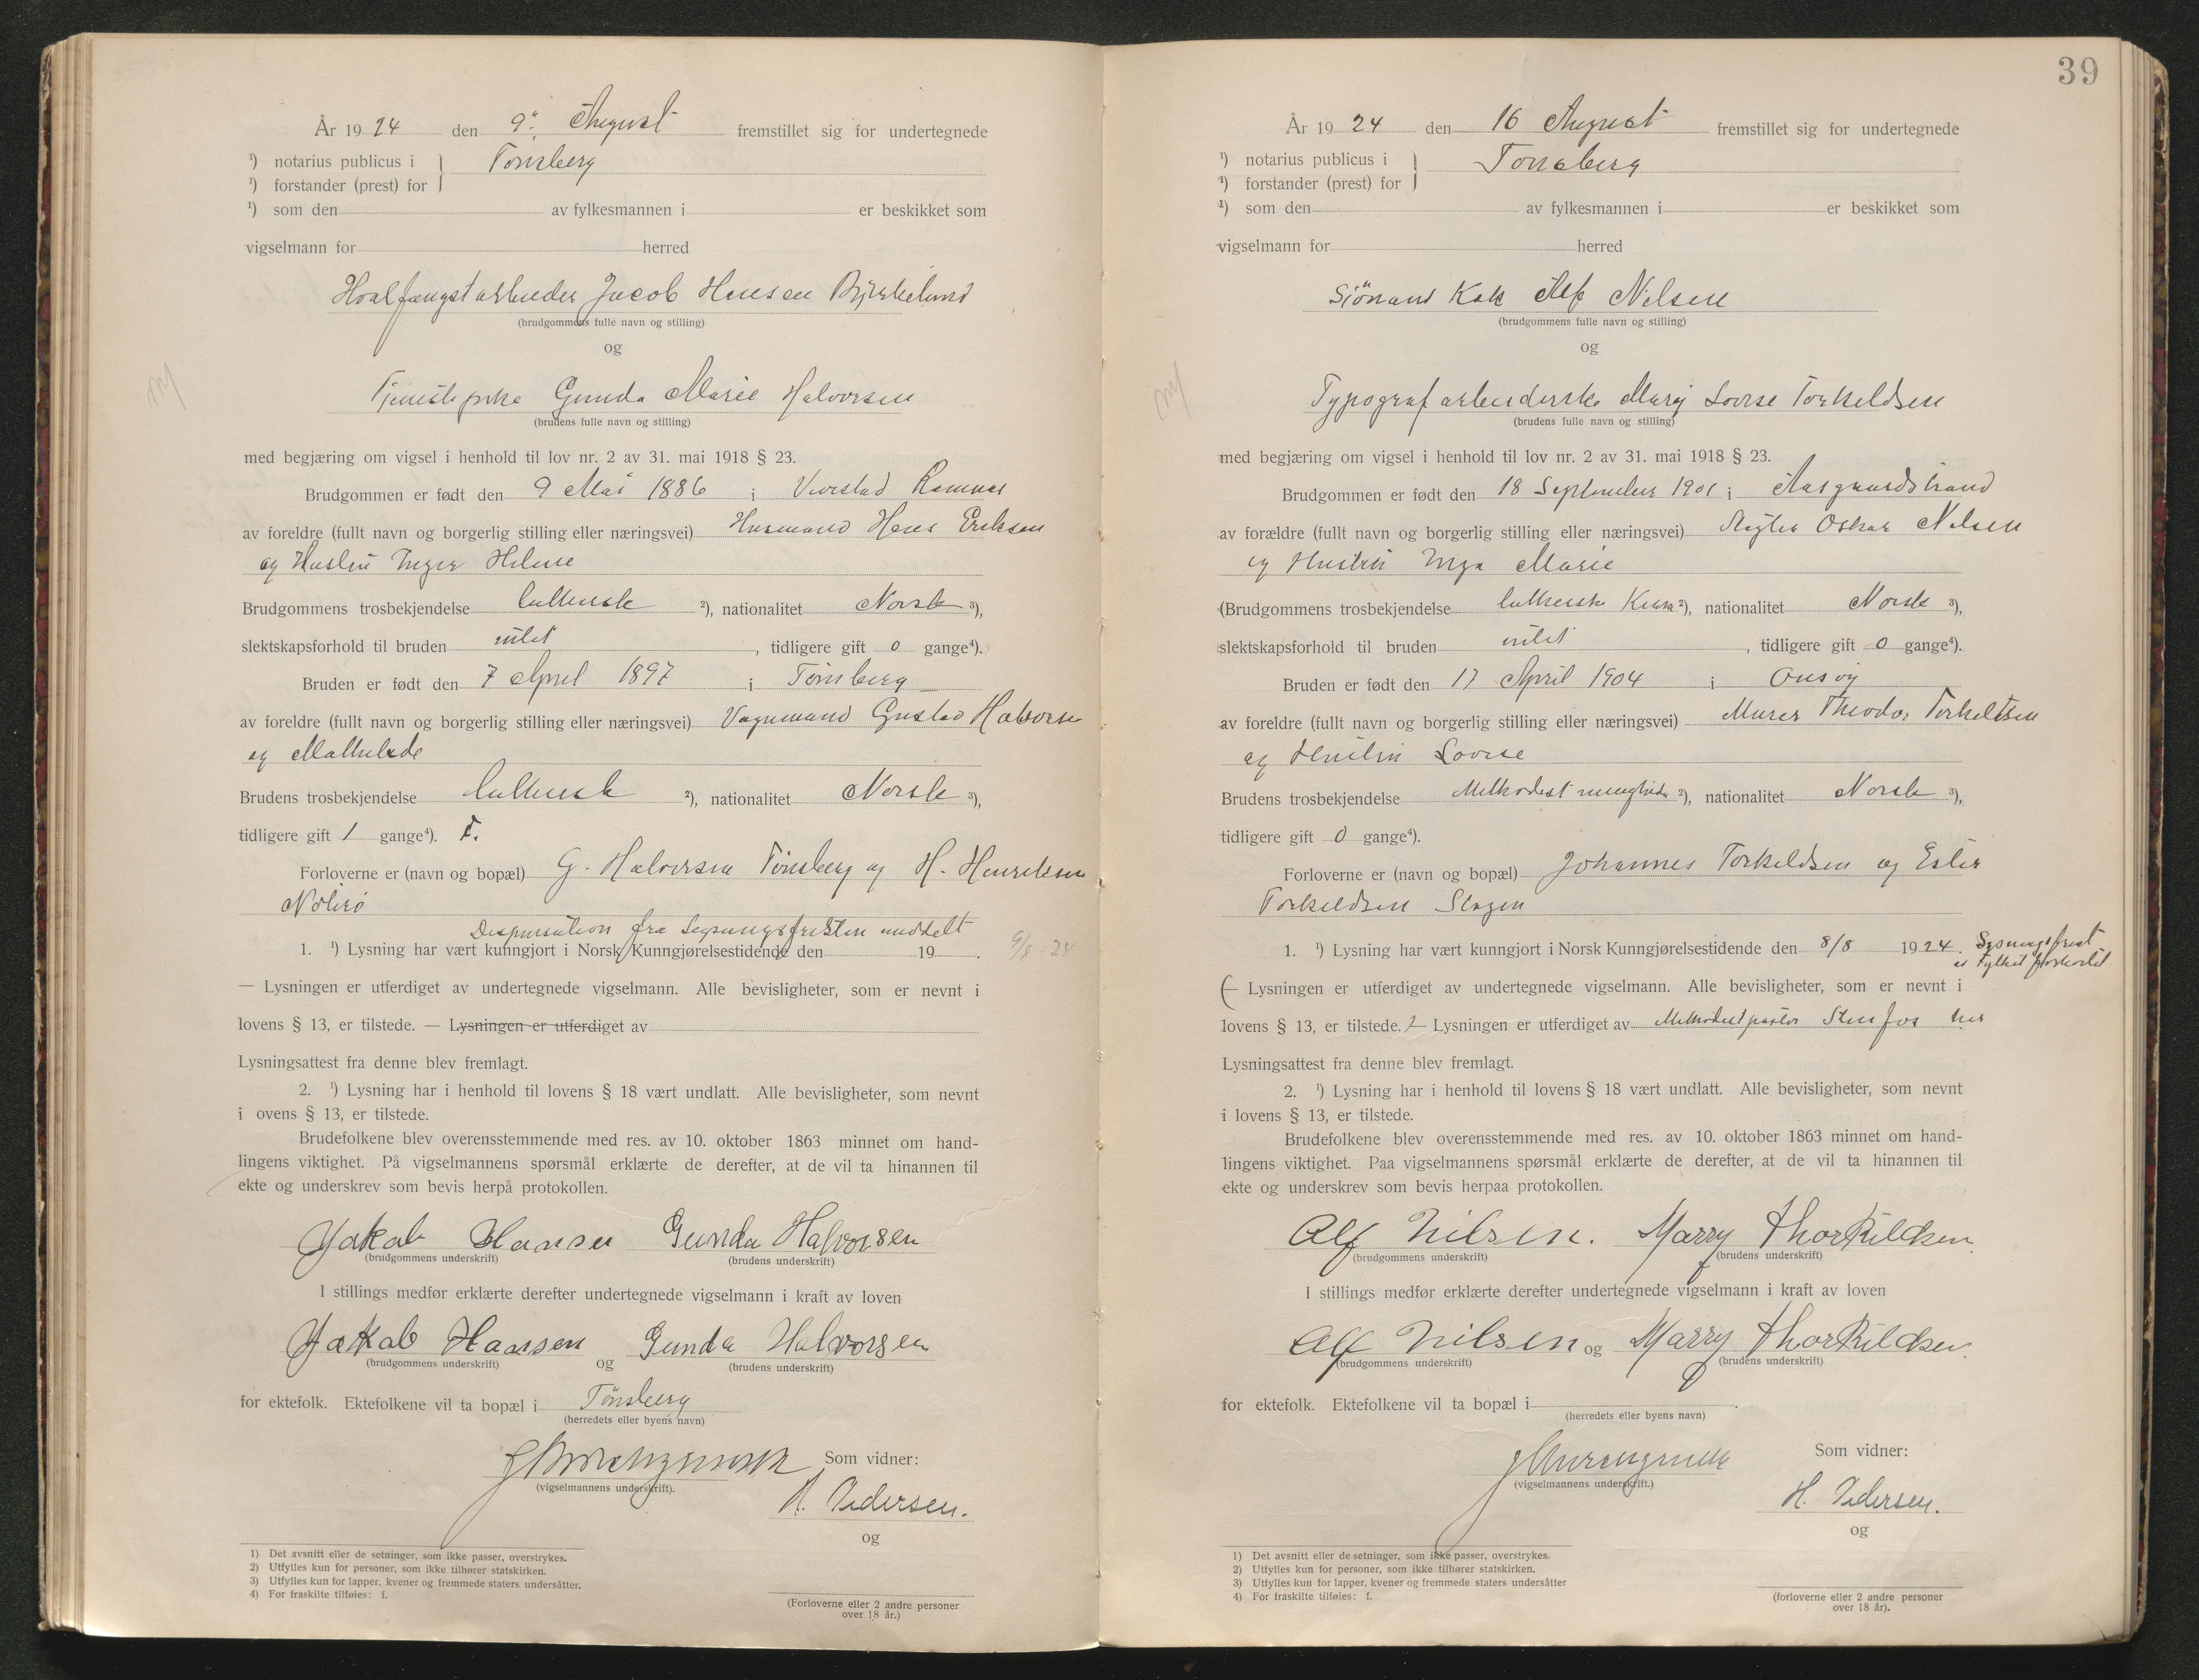 År 19 24 den 9de August fremstillet sig for undertegnede
¹) notarius publicus i } Tønsberg
¹) forstander (prest) for
¹) som den av fylkesmannen i er beskikket som
vigselmann for herred
Hvalfangstarbeider Jacob Hansen Bjerkelund
(brudgommens fulle navn og stilling)
og
Tjenestepike Gunda Marie Halvorsen
(brudens fulle navn og stilling)
med begjæring om vigsel i henhold til lov nr. 2 av 31. mai 1918 § 23.
Brudgommen er født den 9 Mai 1886 i Ramnes
av foreldre (fullt navn og borgerlig stilling eller næringsvei) Husmand Hans Eriksen
og Hustru Inger Helene
Brudgommens trosbekjendelse luthersk ²), nationalitet Norsk ³),
slektskapsforhold til bruden intet , tidligere gift 0 gange⁴).
Bruden er født den 7 April 1897 i Tønsberg
av foreldre (fullt navn og borgerlig stilling eller næringsvei) Vognmand Gustav Halvorsen
og Mathilde
Brudens trosbekjendelse luthersk ²), nationalitet Norsk ³),
tidligere gift 1 gange⁴). F.
Forloverne er (navn og bopæl) G. Halvorsen Tønsberg og H. Henriksen
Nøtterø
Dispensation fra Lysningsfristen meddelt
1. ¹) Lysning har vært kunngjort i Norsk Kunngjørelsestidende den 19 . 9/8-24
— Lysningen er utferdiget av undertegnede vigselmann. Alle bevisligheter, som er nevnt i
lovens § 13, er tilstede. — Lysningen er utferdiget av
Lysningsattest fra denne blev fremlagt.
2. ¹) Lysning har i henhold til lovens § 18 vært undlatt. Alle bevisligheter, som nevnt
i ovens § 13, er tilstede.
Brudefolkene blev overensstemmende med res. av 10. oktober 1863 minnet om hand-
lingens viktighet. På vigselmannens spørsmål erklærte de derefter, at de vil ta hinannen til
ekte og underskrev som bevis herpå protokollen.
Jakab Hansen Gunda Halvorsen
(brudgommens underskrift) (brudens underskrift)
I stillings medfør erklærte derefter undertegnede vigselmann i kraft av loven
Jakab Hansen og Gunda Halvorsen
(brudgommens underskrift) (brudens underskrift)
for ektefolk. Ektefolkene vil ta bopæl i Tönsberg
(herredets eller byens navn)
Som vidner:
(vigselmannens underskrift).
H. Pedersen.
og
1) Det avsnitt eller de setninger, som ikke passer, overstrykes.
2) Utfylles kun for personer, som ikke tilhører statskirken.
3) Utfylles kun for lapper, kvener og fremmede staters undersåtter.
4) For fraskilte tilføies: f.
(Forloverne eller 2 andre personer
over 18 år.)
39
År 19 24 den 16 August fremstillet sig for undertegnede
¹) notarius publicus i } Tønsberg
¹) forstander (prest) for
¹) som den av fylkesmannen i er beskikket som
vigselmann for herred
Sjömand Kok Alf Nilsen
(brudgommens fulle navn og stilling)
og
Typografarbeiderske Mary Lovise Torkeldsen
(brudens fulle navn og stilling)
med begjæring om vigsel i henhold til lov nr. 2 av 31. mai 1918 § 23.
Brudgommen er født den 18 September 1901 i Aasgaardstrand
av forældre (fullt navn og borgerlig stilling eller næringsvei) Slagter Oskar Nilsen
og Hustru Inga Marie
(Brudgommens trosbekjendelse lutherske Kirke ²), nationalitet Norsk ³),
slektskapsforhold til bruden intet , tidligere gift 0 gange⁴).
Bruden er født den 17 April 1904 i Onsöy
av foreldre (fullt navn og borgerlig stilling eller næringsvei) Murer Theodor Torkeldsen
og Hustru Lovise
Brudens trosbekjendelse Methodist menighed ²), nationalitet Norsk ³),
tidligere gift 0 gange⁴).
Forloverne er (navn og bopæl) Johannes Torkeldsen og Ester
Torkeldsen Slagen
1. ¹) Lysning har vært kunngjort i Norsk Kunngjørelsestidende den 8/8 19 24. Lysningsfrist
af Fylket forkortet
(— Lysningen er utferdiget av undertegnede vigselmann. Alle bevisligheter, som er nevnt i
lovens § 13, er tilstede.)— Lysningen er utferdiget av Methodistpastor Stenfos her
Lysningsattest fra denne blev fremlagt.
2. ¹) Lysning har i henhold til lovens § 18 vært undlatt. Alle bevisligheter, som nevnt
i lovens § 13, er tilstede.
Brudefolkene blev overensstemmende med res. av 10. oktober 1863 minnet om hand-
lingens viktighet. Paa vigselmannens spørsmål erklærte de derefter, at de vil ta hinannen til
ekte og underskrev som bevis herpaa protokollen.
Alf Nilsen. Marry Thorkildsen.
(brudgommens underskrift) (brudens underskrift)
I stillings medfør erklærte derefter undertegnede vigselmann i kraft av loven
Alf Nilsen og Marry Thorkildsen.
(brudgommens underskrift) (brudens underskrift)
for ektefolk. Ektefolkene vil ta bopæl i .
(herredets eller byens navn)
Som vidner:
(vigselmannens underskrift.)
H. Pedersen.
og
1) Det avsnitt eller de setninger, som ikke passer, overstrykes.
2) Utfylles kun for personer, som ikke tilhører statskirken.
3) Utfylles kun for lapper, kvener og fremmede staters undersåtter
4) For fraskilte tilføies: f.
(forloverne eller 2 andre personer
over 18 år).